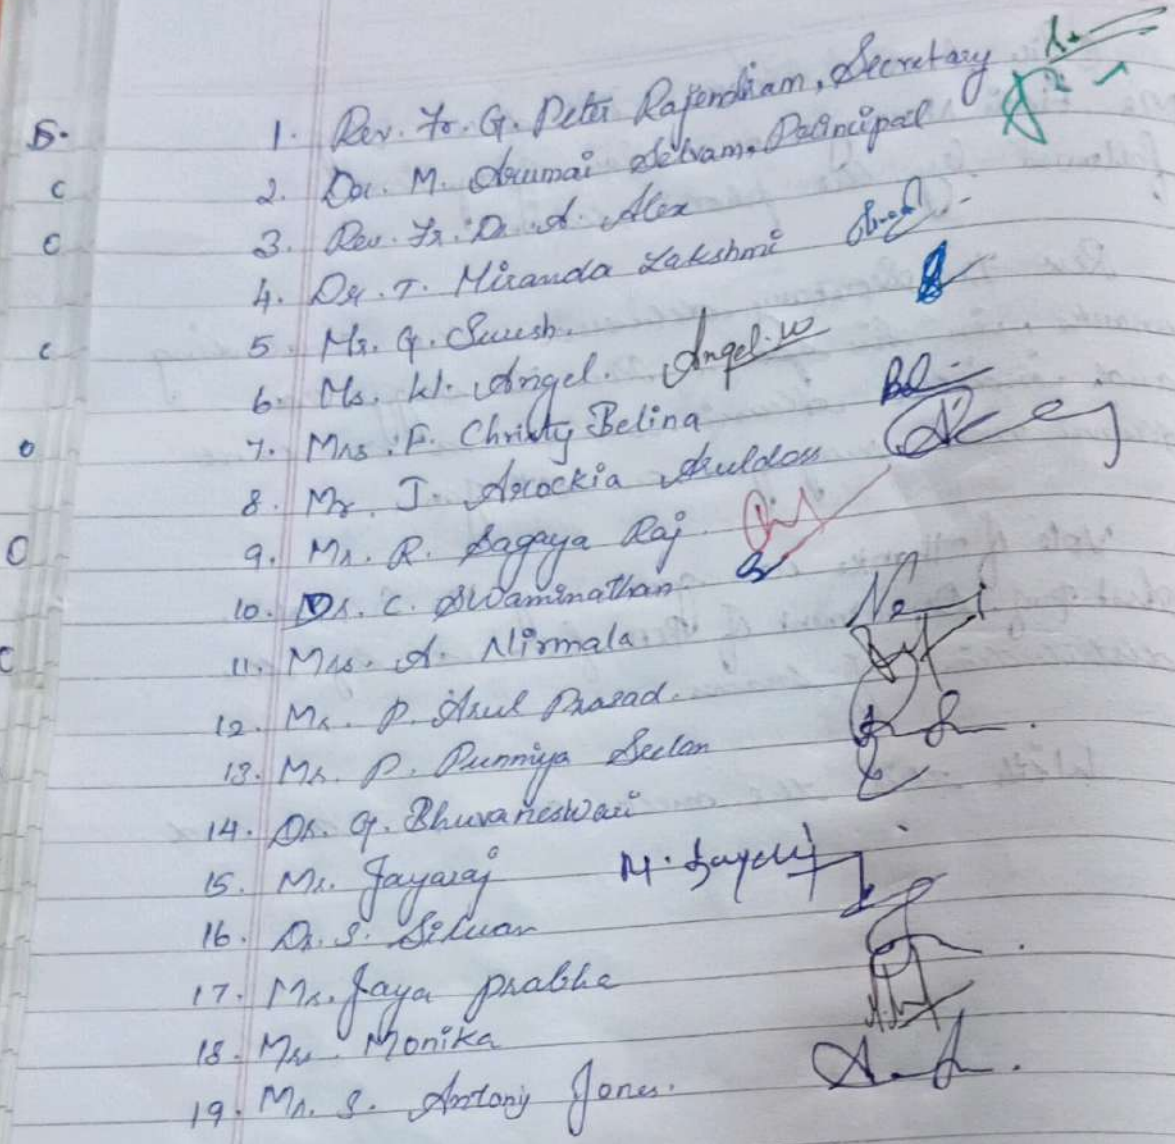 1. Rev. Fr. G. Peter Rajendiam, Secretary
2. Dr. M. Arumai Selvam, Principal
3. Rev. Fr. Dr. A. Alex
4. Dr. T. Miranda Lakshmi
5. Mr. G. Suresh.
6. Ms. W. Angel. Angel.W
7. Mrs. F. Christy Belina
8. Mr. J. Arockia Aruldoss
9. Mr. R. Sagaya Raj.
10. Dr. C. Swaminathan
11. Mrs. A. Nirmala
12. Mr. P. Arul Prasad.
13. Mr. P. Punniya Seelan
14. Dr. G. Bhuvaneswari
15. Mr. Jayaraj
16. Dr. S. Siluvan
17. Mr. Jaya prabha
18. Mrs. Monika
19. Mr. S. Antony Jones.